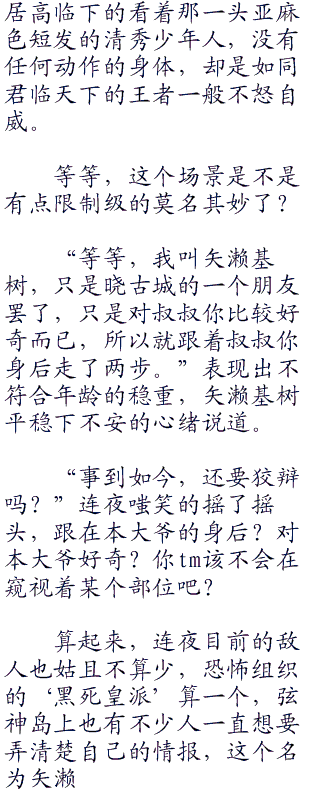 居高临下的看着那一头亚麻
色短发的清秀少年人，没有
任何动作的身体，却是如同
君临天下的王者一般不怒自
威。
等等，这个场景是不是
有点限制级的莫名其妙了？
“等等，我叫矢濑基
树，只是晓古城的一个朋友
罢了，只是对叔叔你比较好
奇而已，所以就跟着叔叔你
身后走了两步。”表现出不
符合年龄的稳重，矢濑基树
平稳下不安的心绪说道。
“事到如今，还要狡辩
吗？”连夜嗤笑的摇了摇
头，跟在本大爷的身后？对
本大爷好奇？你tm该不会在
窥视着某个部位吧？
算起来，连夜目前的敌
人也姑且不算少，恐怖组织
的‘黑死皇派’算一个，弦
神岛上也有不少人一直想要
弄清楚自己的情报，这个名
为矢濑